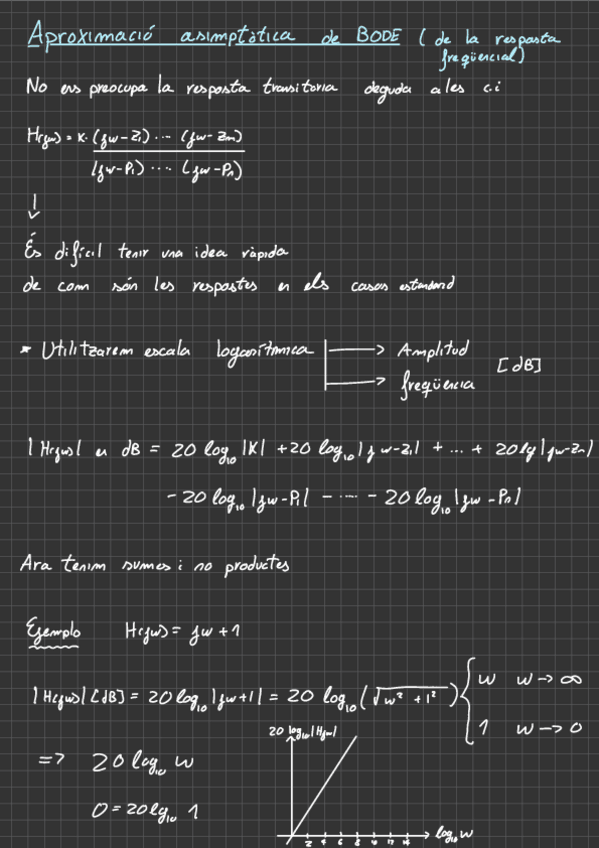 Aproximació asimptòtica de BODE (de la resposta
freqüencial)
No ens preocupa la resposta transitoria deguda a les c.i
H(jw) = K · (jw-Z1) ··· (jw-Zm)
(jw-P1) ···· (jw-Pn)
És difícil tenir una idea ràpida
de com són les respostes en els casos estandard
* Utilitzarem escala logarítmica → Amplitud
→ freqüencia [dB]
|H(jw)| en dB = 20 log10 |K| + 20 log10 |jw-Z1| + ... + 20 lg |jw-Zn|
- 20 log10 |jw-P1| - ···· - 20 log10 |jw-Pn|
Ara tenim sumes i no productes
Ejemplo H(jw) = jw + 1
|H(jw)| [dB] = 20 log10 |jw+1| = 20 log10 (√w² + 1²) { w w → ∞
1 w → 0
=> 20 log10 w
0 = 20 lg10 1
20 log10 |H(jw)|
log10 w